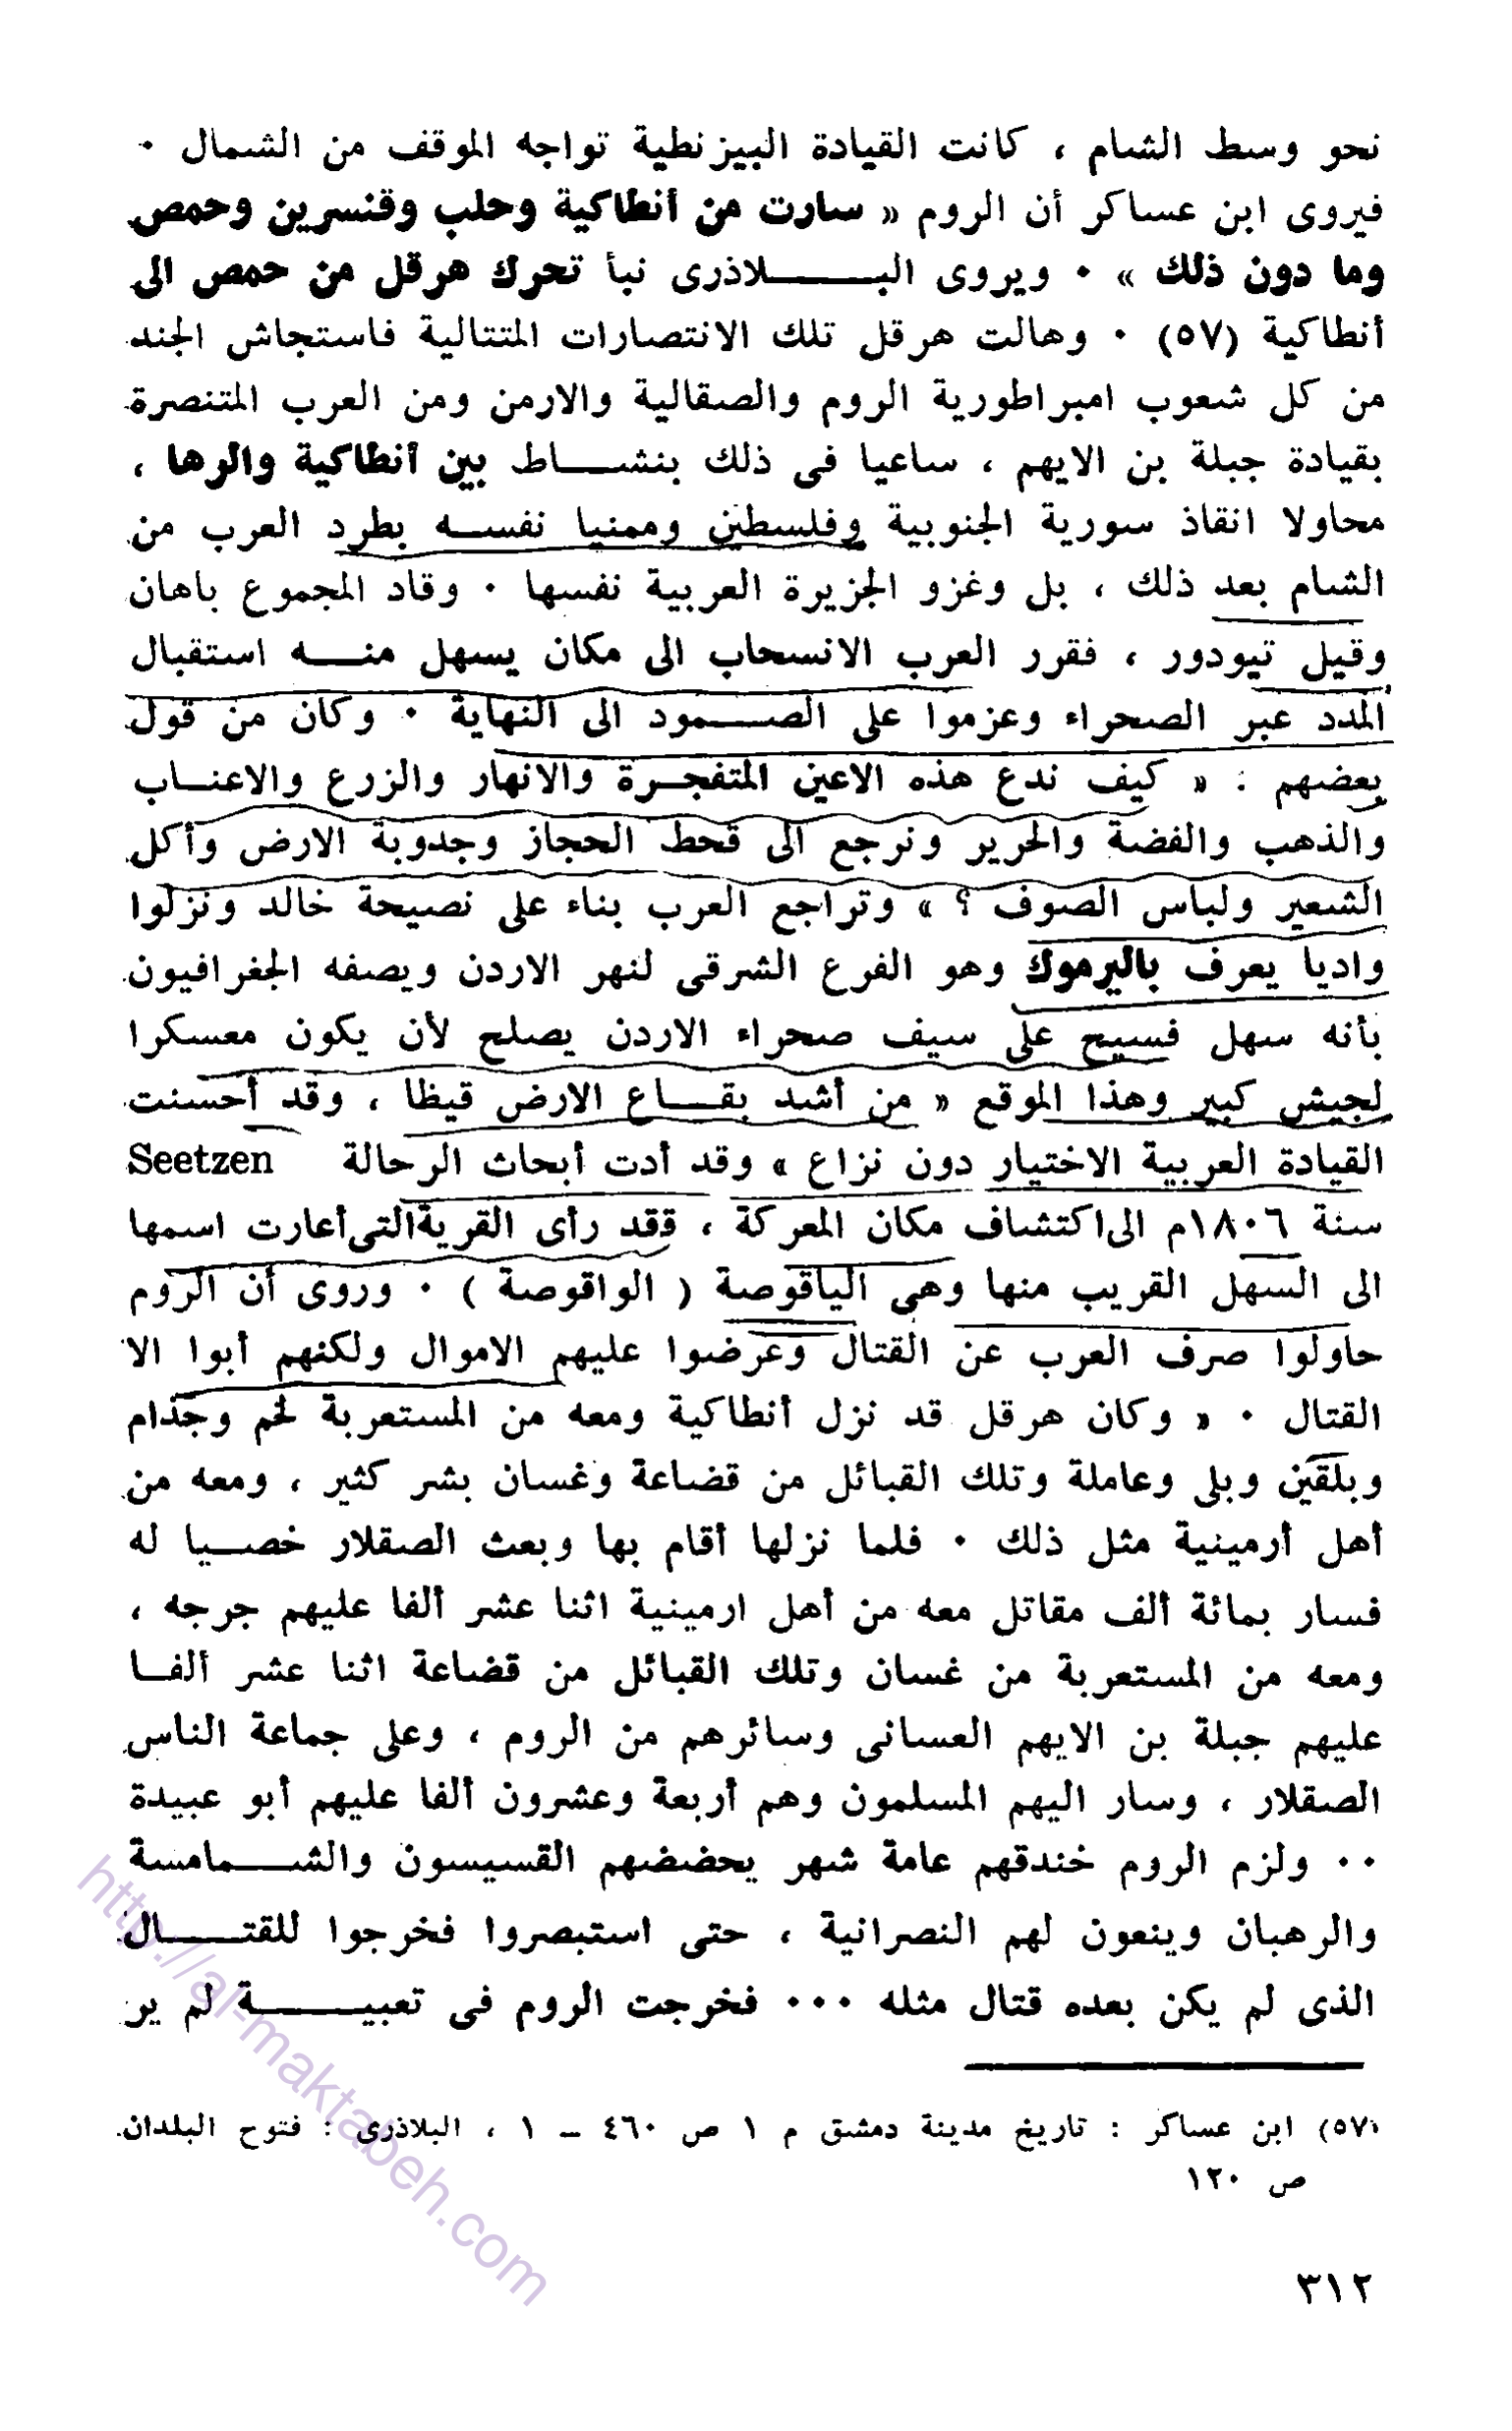 نحو وسط الشام ، كانت القيادة البيزنطية تواجه الموقف من الشمال ٠
فيروى ابن عساكر أن الروم « سارت من أنطاكية وحلب وقنسرين وحمص
وما دون ذلك » ٠ ويروى البلاذرى نبأ تحرك هرقل من حمص الى
أنطاكية (٥٧) ٠ وهالت هرقل تلك الانتصارات المتتالية فاستجاش الجند
من كل شعوب امبراطورية الروم والصقالية والارمن ومن العرب المتنصرة
بقيادة جبلة بن الايهم ، ساعيا فى ذلك بنشاط بين أنطاكية والرها ،
محاولا انقاذ سورية الجنوبية وفلسطين وممنيا نفسه بطرد العرب من
الشام بعد ذلك ، بل وغزو الجزيرة العربية نفسها ٠ وقاد المجموع باهان
وقيل تيودور ، فقرر العرب الانسحاب الى مكان يسهل منه استقبال
المدد عبر الصحراء وعزموا على الصمود الى النهاية ٠ وكان من قول
بعضهم : « كيف ندع هذه الاعين المتفجرة والانهار والزرع والاعناب
والذهب والفضة والحرير ونرجع الى قحط الحجاز وجدوبة الارض وأكل
الشعير ولباس الصوف ؟ » وتراجع العرب بناء على نصيحة خالد ونزلوا
واديا يعرف باليرموك وهو الفرع الشرقى لنهر الاردن ويصفه الجغرافيون
بأنه سهل فسيح على سيف صحراء الاردن يصلح لأن يكون معسكرا
لجيش كبير وهذا الموقع « من أشد بقاع الارض قيظا ، وقد أحسنت
القيادة العربية الاختيار دون نزاع » وقد أدت أبحاث الرحالة Seetzen
سنة ١٨٠٦م الى اكتشاف مكان المعركة ، فقد رأى القرية التى أعارت اسمها
الى السهل القريب منها وهى الياقوصة ( الواقوصة ) ٠ وروى أن الروم
حاولوا صرف العرب عن القتال وعرضوا عليهم الاموال ولكنهم أبوا الا
القتال ٠ « وكان هرقل قد نزل أنطاكية ومعه من المستعربة لخم وجذام
وبلقين وبلى وعاملة وتلك القبائل من قضاعة وغسان بشر كثير ، ومعه من
أهل أرمينية مثل ذلك ٠ فلما نزلها أقام بها وبعث الصقلار خصيا له
فسار بمائة ألف مقاتل معه من أهل ارمينية اثنا عشر ألفا عليهم جرجه ،
ومعه من المستعربة من غسان وتلك القبائل من قضاعة اثنا عشر ألفا
عليهم جبلة بن الايهم العسانى وسائرهم من الروم ، وعلى جماعة الناس
الصقلار ، وسار اليهم المسلمون وهم أربعة وعشرون ألفا عليهم أبو عبيدة
٠٠ ولزم الروم خندقهم عامة شهر يحضضهم القسيسون والشمامسة
والرهبان وينعون لهم النصرانية ، حتى استبصروا فخرجوا للقتال
الذى لم يكن بعده قتال مثله ٠٠٠ فخرجت الروم فى تعبية لم ير
(٥٧) ابن عساكر : تاريخ مدينة دمشق م ١ ص ٤٦٠ – ١ ، البلاذرى : فتوح البلدان
ص ١٢٠
٣١٢
http://al-maktabeh.com